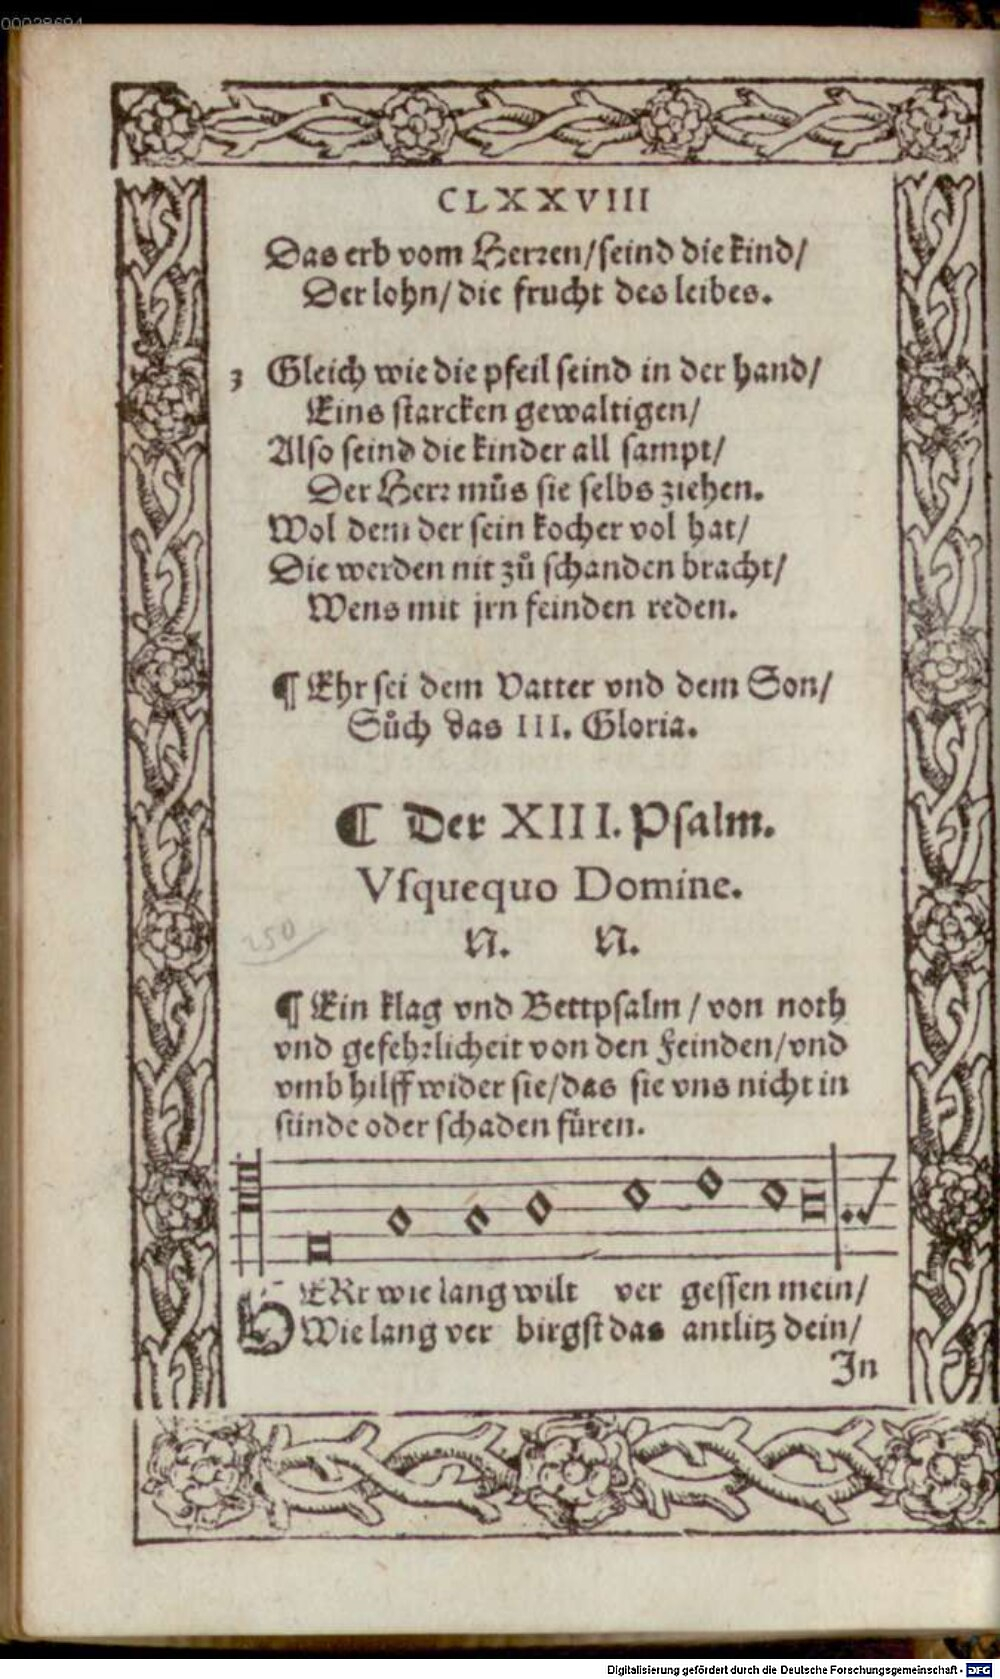 00028694
CLXXVIII
Das erb vom Herren/ seind die kind/
Der lohn/ die frucht des leibes.
3 Gleich wie die pfeil seind in der hand/
Eins starcken gewaltigen/
Also seind die kinder all sampt/
Der Herr můs sie selbs ziehen.
Wol dem der sein kocher vol hat/
Die werden nit zů schanden bracht/
Wens mit jrn feinden reden.
¶ Ehr sei dem Vatter vnd dem Son/
Sůch das III. Gloria.
¶ Der XIII. Psalm.
Vsquequo Domine.
N. N.
250
¶ Ein klag vnd Bettpsalm / von noth
vnd gefehrlicheit von den Feinden/ vnd
vmb hilff wider sie/ das sie vns nicht in
sünde oder schaden füren.
HERr wie lang wilt ver gessen mein/
Wie lang ver birgst das antlitz dein/
In
Digitalisierung gefördert durch die Deutsche Forschungsgemeinschaft - DFG